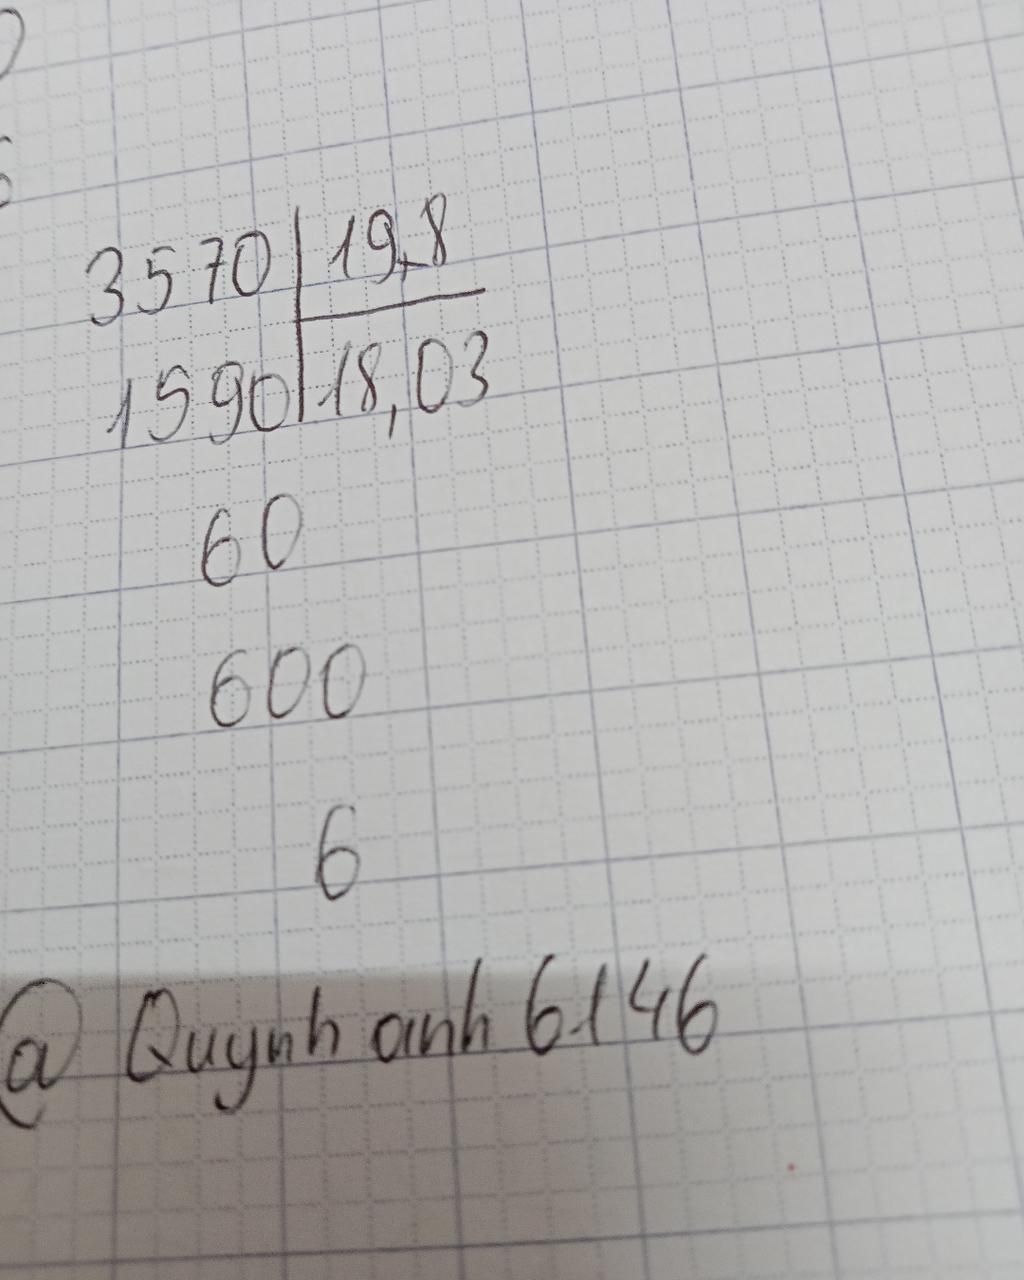 3570 19,8
1590 18,03
60
600
6
@ Quynh anh 6146